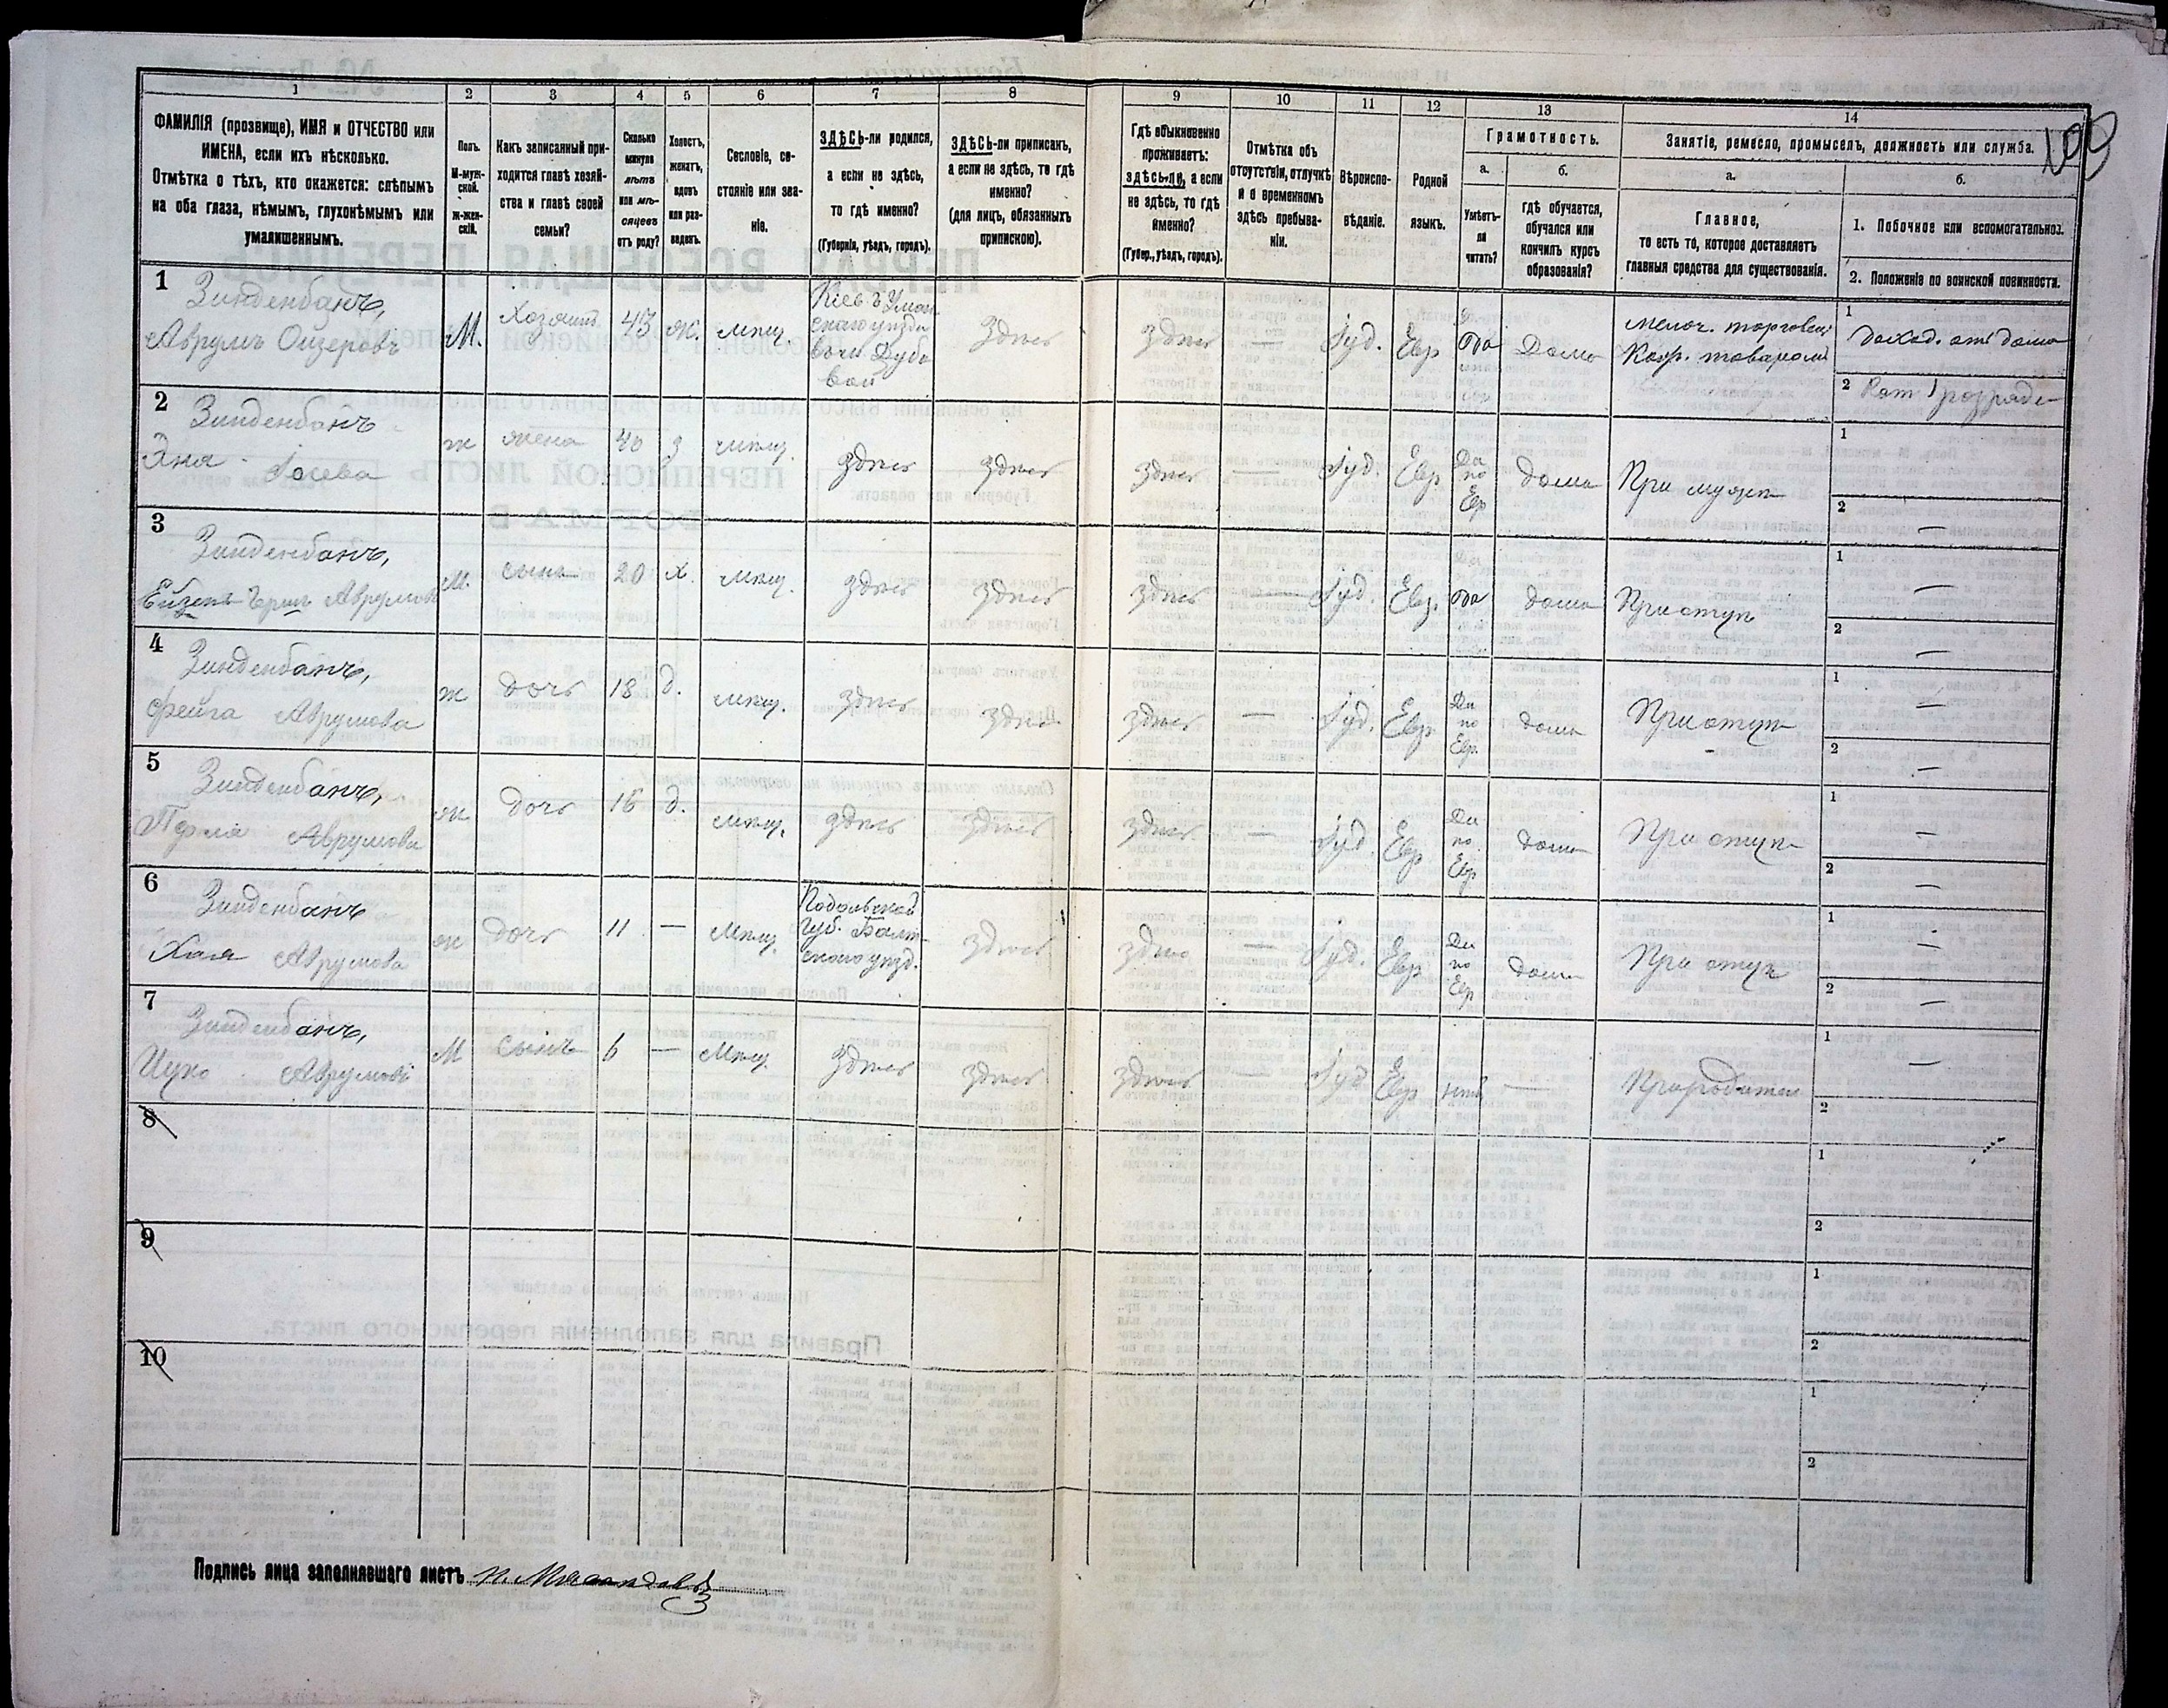 100
1 2 3 4 5 6 7 8 9 10 11 12 13 14
ФАМИЛІЯ (прозвище), ИМЯ и ОТЧЕСТВО или
ИМЕНА, если ихъ нѣсколько.
Отмѣтка о тѣхъ, кто окажется: слѣпымъ
на оба глаза, нѣмымъ, глухонѣмымъ или
умалишеннымъ.
Полъ.
М-муж-
ской.
ж-жен-
скій.
Какъ записанный при-
ходится главѣ хозяй-
ства и главѣ своей
семьи?
Сколько
минуло
лѣтъ
или мѣ-
сяцевъ
отъ роду?
Холостъ,
женатъ,
вдовъ
или раз-
веденъ.
Сословіе, со-
стояніе или зва-
ніе.
ЗДѢСЬ-ли родился,
а если не здѣсь,
то гдѣ именно?
(Губернія, уѣздъ, городъ).
ЗДѢСЬ-ли приписанъ,
а если не здѣсь, то гдѣ
именно?
(для лицъ, обязанныхъ
припискою).
Гдѣ обыкновенно
проживаетъ:
здѣсь-ли, а если
не здѣсь, то гдѣ
именно?
(Губер., уѣздъ, городъ).
Отмѣтка объ
отсутствіи, отлучкѣ
и о временномъ
здѣсь пребыва-
ніи.
Вѣроиспо-
вѣданіе.
Родной
языкъ.
Грамотность.
а.
Умѣетъ-
ли
читать?
б.
гдѣ обучается,
обучался или
кончилъ курсъ
образованія?
Занятіе, ремесло, промыселъ, должность или служба.
а.
Главное,
то есть то, которое доставляетъ
главныя средства для существованія.
б.
1. Побочное или вспомогательное.
2. Положеніе по воинской повинности.
1
Зинденбанъ,
Аврумъ Ойзеровъ
М. Хозяинъ 43 ж. мѣщ.
Кіев г Уман
скаго уѣзда
Дубо
вой
здѣсь здѣсь — Іуд. Евр Да Дома
мелоч. торговец
товаромъ
1 доход. отъ дома
2 Рат 1 разряда
2
Зинденбанъ
Хня Іосева
ж жена 40 з мѣщ. здѣсь здѣсь здѣсь — Іуд. Евр Да по Евр дома При мужѣ
1
2 —
3
Зинденбанъ,
Герш Аврумовъ
М. сынъ 20 х. мѣщ. здѣсь здѣсь здѣсь — Іуд. Евр. Да дома При отцѣ
1 —
2 —
4
Зинденбанъ,
Фейга Аврумова
ж дочь 18 д. мѣщ. здѣсь здѣсь здѣсь — Іуд. Евр Да по Евр дома При отцѣ
1 —
2 —
5
Зинденбанъ,
Перля Аврумова
ж дочь 16 д. мѣщ. здѣсь здѣсь здѣсь — Іуд. Евр Да по Евр дома При отцѣ
1 —
2 —
6
Зинденбанъ
Хая Аврумова
ж дочь 11 — мѣщ.
Подольской
Губ. Балт-
скаго уѣзд.
здѣсь здѣсь — Іуд. Евр Да по Евр дома При отцѣ
1 —
2 —
7
Зинденбанъ,
Ицко Аврумовъ
М сынъ 6 — мѣщ. здѣсь здѣсь здѣсь — Іуд Евр нѣтъ —
1 —
2
8
1
2
9
1
2
10
1
2
Подпись лица заполнявшаго листъ